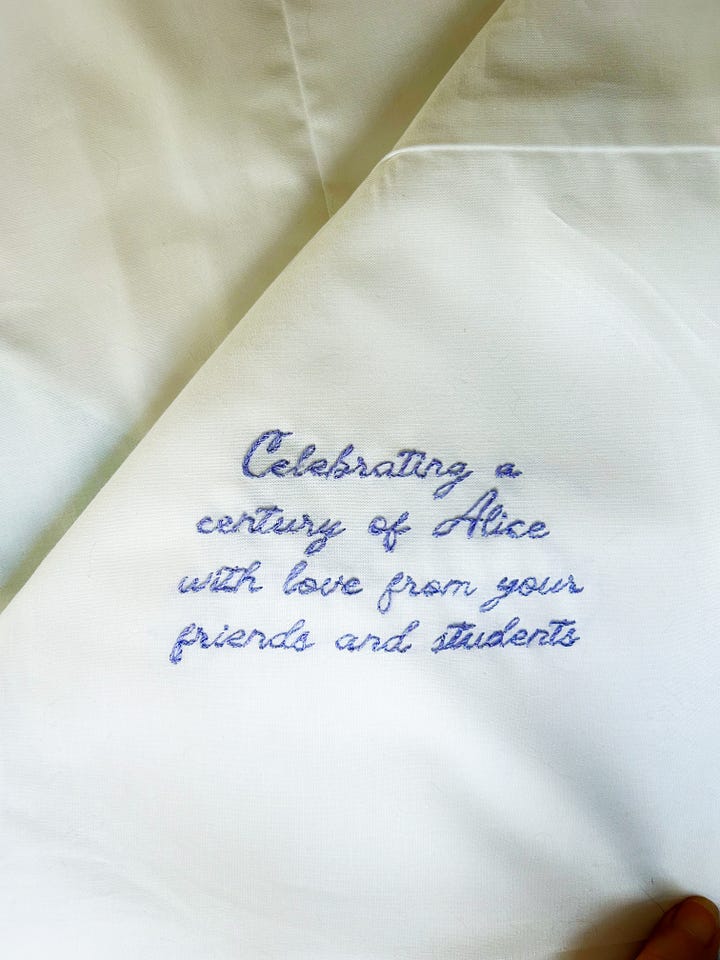 Celebrating a
century of Alice
with love from your
friends and students